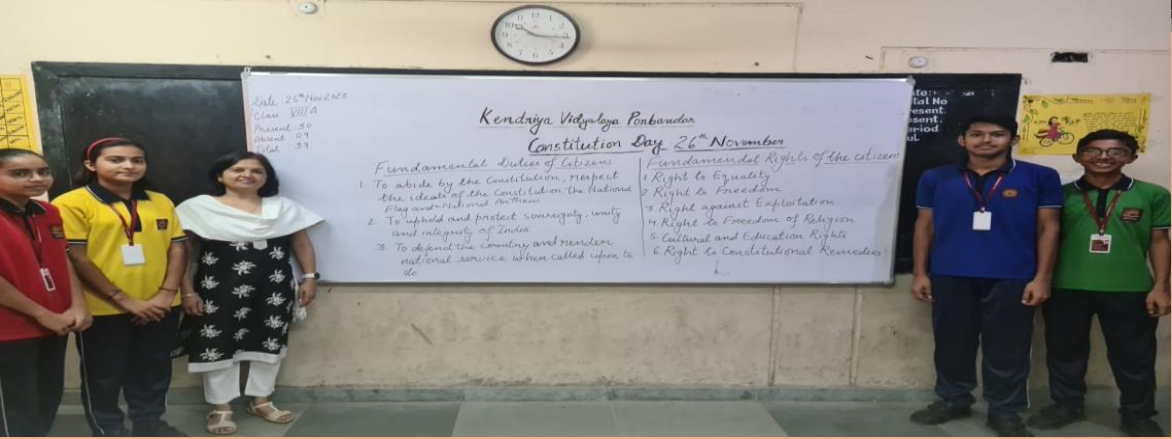 Date: 26th Nov 2022
Class VIII A
Present: 30
Absent: 09
Total: 39
Kendriya Vidyalaya Porbandar
Constitution Day 26th November
Fundamental Duties of Citizens
1. To abide by the Constitution, respect
the ideals of the Constitution, the National
Flag and National Anthem
2. To uphold and protect sovereignty, unity
and integrity of India
3. To defend the country and render
national service when called upon to
do.
Fundamental Rights of the citizen
1. Right to Equality
2. Right to Freedom
3. Right against Exploitation
4. Right to Freedom of Religion
5. Cultural and Education Rights
6. Right to Constitutional Remedies
tal No
esent
sent
eriod
12
1
2
3
4
5
6
7
8
9
10
11